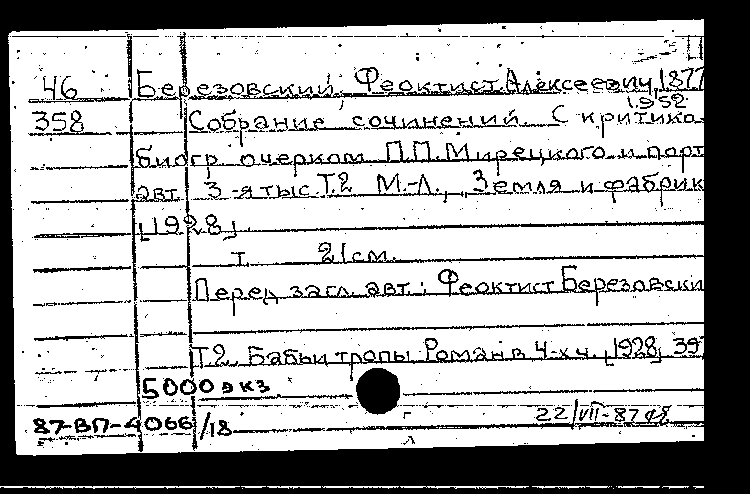 46 Березовский, Феоктист Алексеевич, 1877
1952
358 Собрание сочинений. С критико-
биогр. очерком П.П. Мирецкого и порт
авт. 3-я тыс. Т.2 М.-Л., Земля и фабрик
[1928].
т. 21 см.
Перед загл. авт.: Феоктист Березовски
Т.2. Бабьи тропы. Роман в 4-х ч. [1928] 39
5000 экз
87-ВП-4066/18 22/VII-87